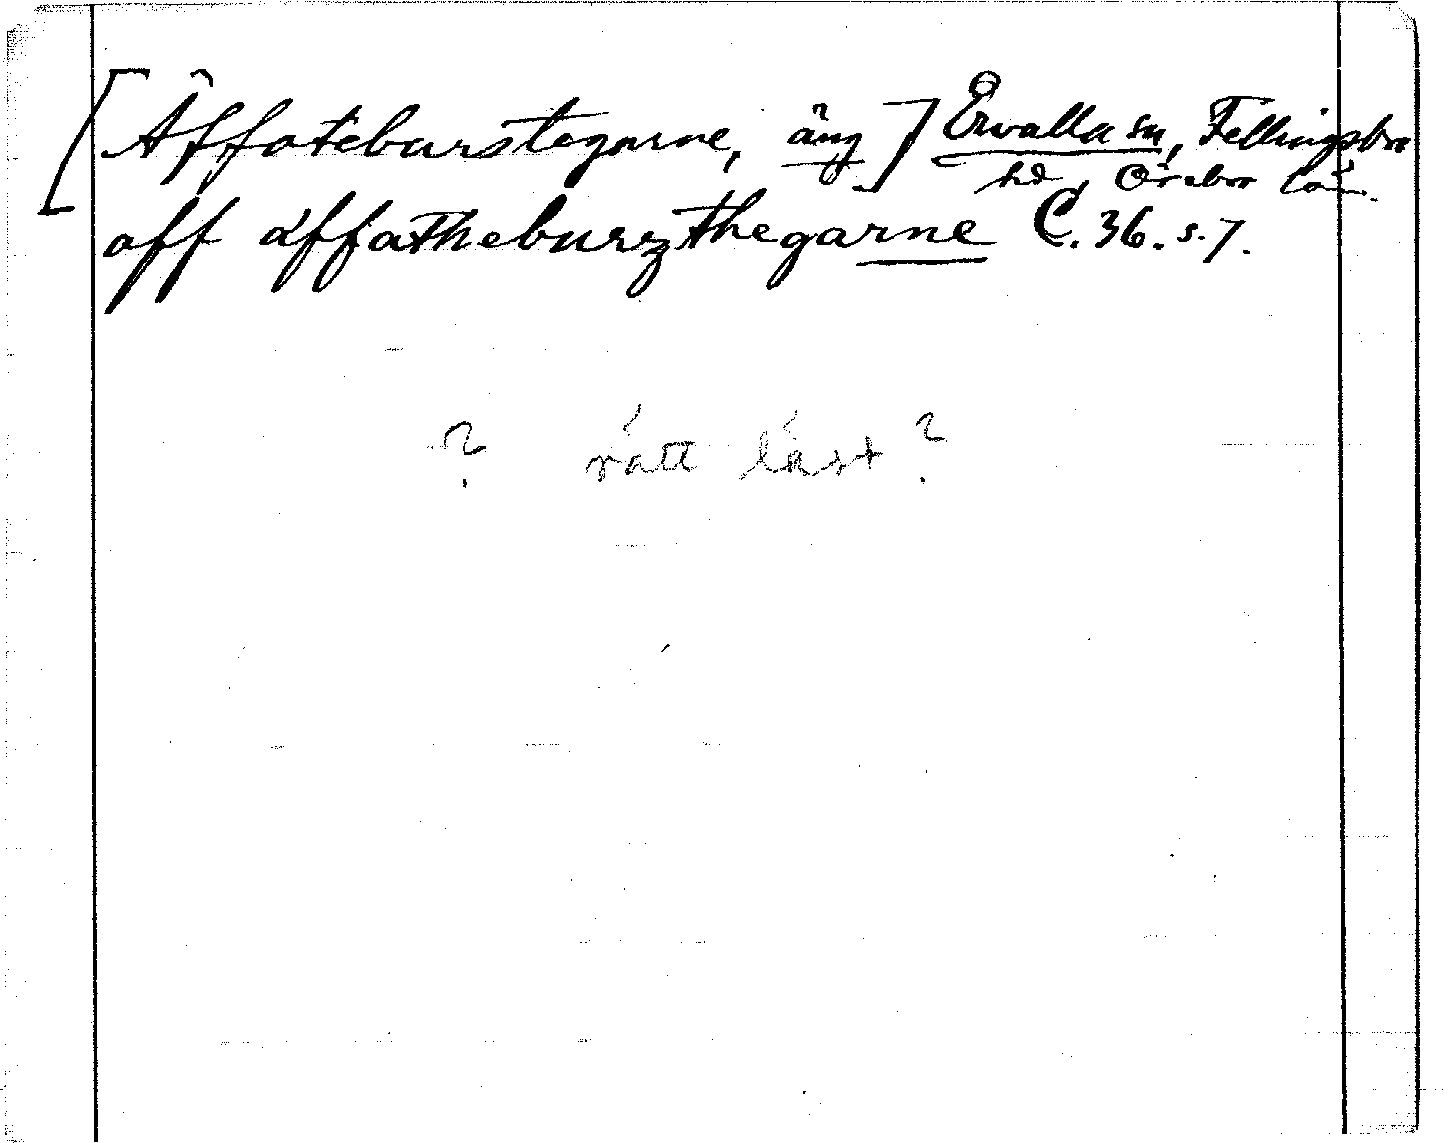 [Äffateburstegarne, äng] Ervalla sn, Fellingsbro
hd, Örebro län.
aff äffatheburzthegarne C. 36. s. 7.
? rätt läst?